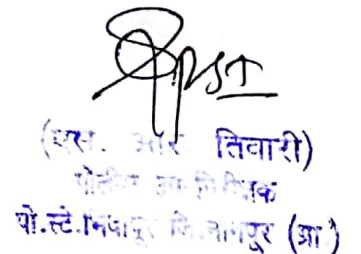 (एस. आर. तिवारी)
पोलीस उप-निरीक्षक
पो.स्टे.भिवापूर जि.नागपूर (ग्रा.)